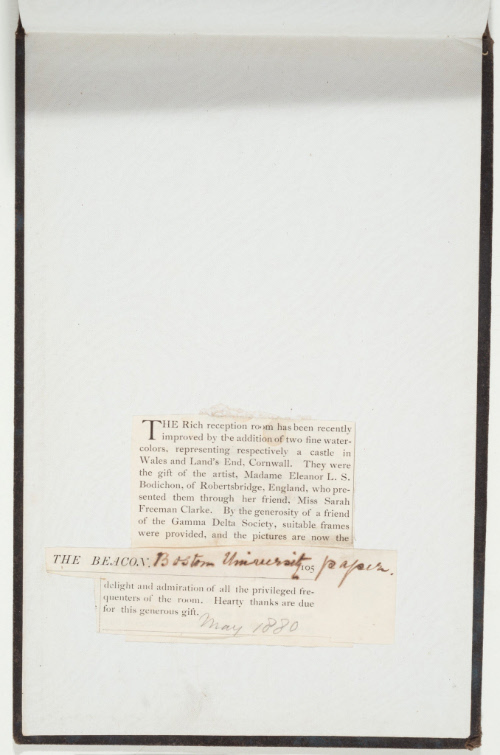 THE Rich reception room has been recently
improved by the addition of two fine water-
colors, representing respectively a castle in
Wales and Land's End, Cornwall. They were
the gift of the artist, Madame Eleanor L. S.
Bodichon, of Robertsbridge, England, who pre-
sented them through her friend, Miss Sarah
Freeman Clarke. By the generosity of a friend
of the Gamma Delta Society, suitable frames
were provided, and the pictures are now the
THE BEACON. Boston University 105 paper.
delight and admiration of all the privileged fre-
quenters of the room. Hearty thanks are due
for this generous gift.
May 1880